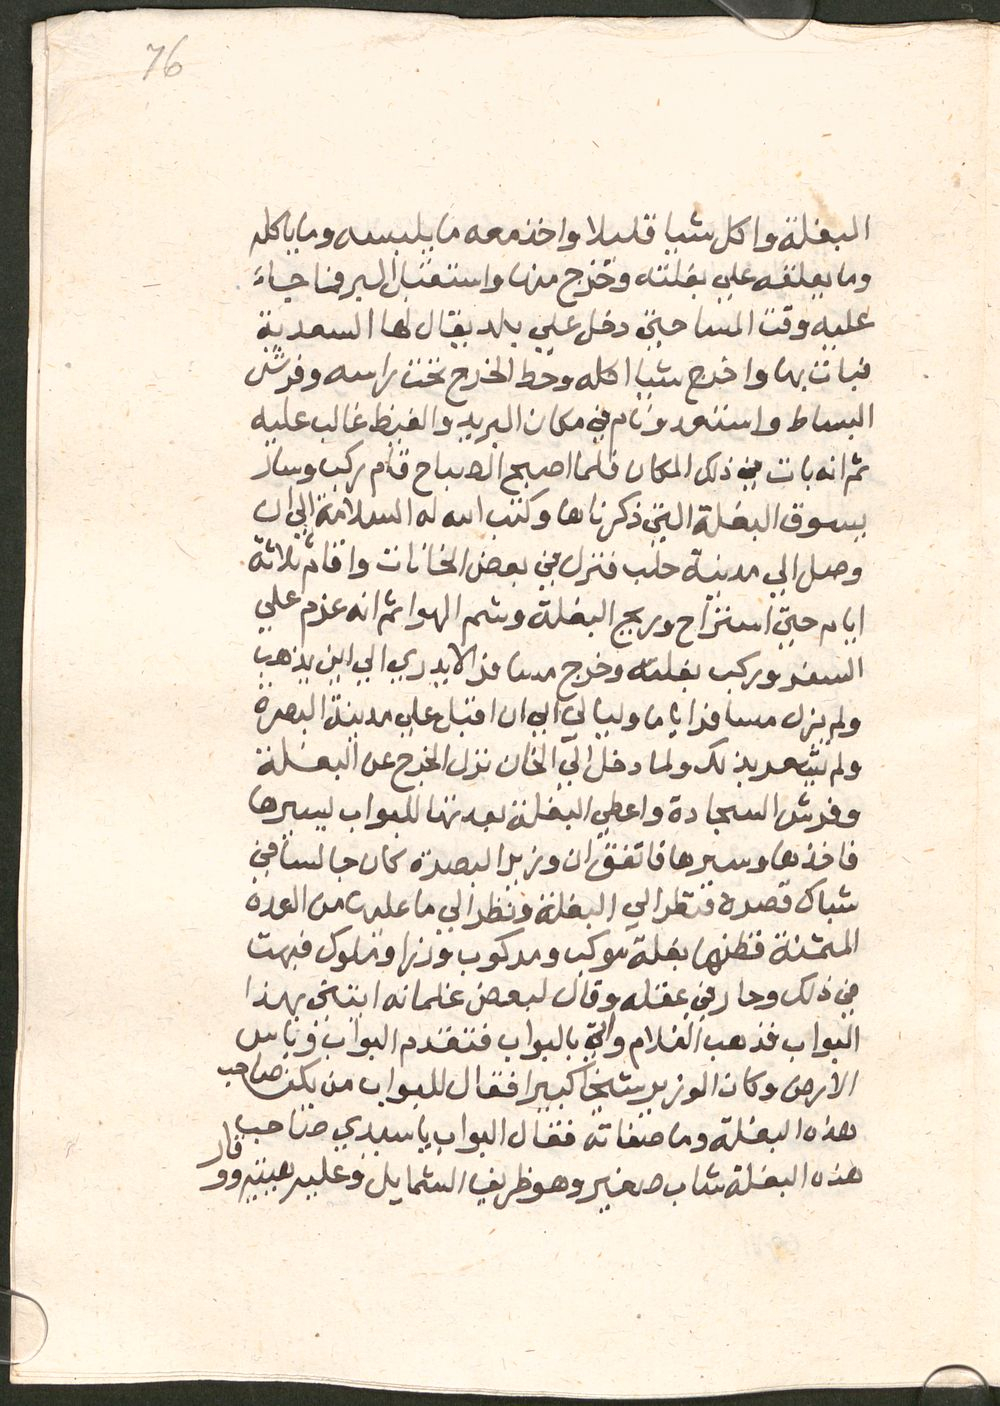 76
البغلة واكل شيا قليلا واخذ معه ما يلبسه وما ياكله
وما يعلقه علي بغلته وخرج منها واستقبل البر فما جاء
عليه وقت المسا حتي دخل علي بلد يقال لها السعدية
فبات بها واخرج شيا اكله وحط الخرج تحت راسه وفرش
البساط ونام في مكان البريد والغيظ غالب عليه
ثم انه بات في ذلك المكان فلما اصبح الصباح قام ركب وسار
يسوق البغلة التي ذكرناها وكتب الله له السلامة الي ان
وصل الي مدينة حلب فنزل في بعض الخانات واقام ثلاثة
ايام حتي استراح وريح البغلة وشم الهوا ثم انه عزم علي
السفر وركب بغلته وخرج مسافرا لا يدري الي اين يذهب
ولم يزل مسافرا اياما وليالي الي ان اقبل علي مدينة البصرة
ولم يشعر بذلك ولما دخل الي الخان نزل الخرج عن البغلة
وفرش السجادة واعطي البغلة بعدتها للبواب ليسيرها
فاخذها وسيرها فاتفق ان وزير البصرة كان جالسا في
شباك قصره فنظر الي البغلة ونظر الي ما عليها من العدة
المثمنة فظنها بغلة موكب ومركوب وزرا وملوك فبهت
في ذلك وحار في عقله وقال لبعض غلمانه ايتني بهذا
البواب فذهب الغلام واتي بالبواب فتقدم البواب وباس
الارض وكان الوزير شيخا كبيرا فقال للبواب من يكن صاحب
هذه البغلة وما صفاته فقال البواب يا سيدي صاحب
هذه البغلة شاب صغير وهو ظريف الشمايل وعليه هيبة ووقار